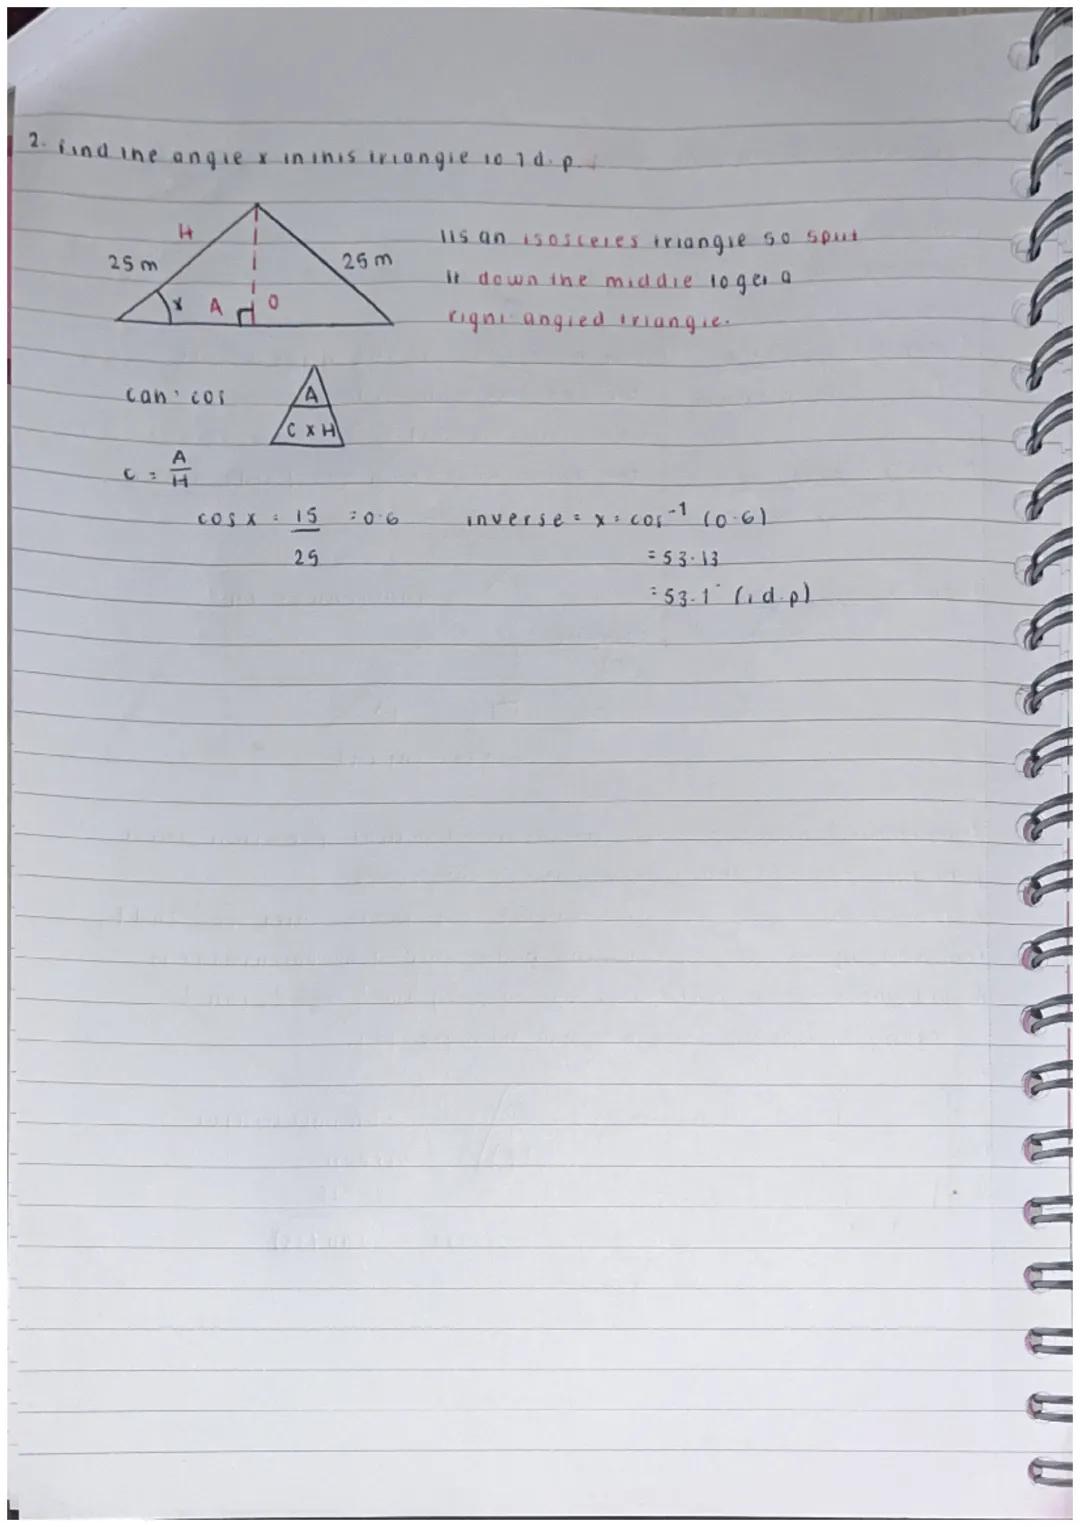 2. find the angle x in this triangle to 1 d.p.
H
25 m
25 m
x
A
O
Its an isosceles triangle so split
it down the middle to get a
right-angled triangle.
cah: cos
A
C x H
C = A/H
cos x = 15/25 = 0.6
inverse = x = cos⁻¹ (0.6)
= 53.13
= 53.1° (1 d.p)